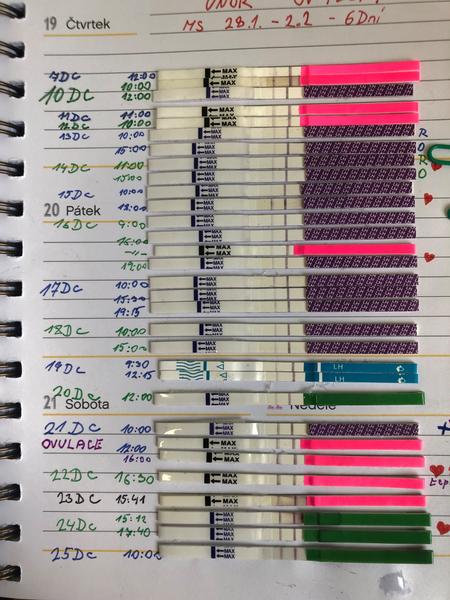 ÚNOR
19 Čtvrtek
MS 28.1. - 2.2 - 6Dní
7DC 12:00 MAX
10:00 MAX
10DC 12:00 MAX
11DC 11:00 MAX
12DC 10:00 MAX
13DC 10:00 MAX R
15:00 MAX O
14DC 11:00 MAX R
15:00 MAX O
15DC 10:00 MAX
20 Pátek 18:00 MAX
16DC 9:00 MAX
MAX
-11- MAX
19:00 MAX
17DC 10:00 MAX
15:30 MAX
19:15 MAX
18DC 10:00 MAX
15:00 MAX
19DC 9:30 LH
12:15 LH
20DC 12:00 MAX
21 Sobota Neděle
21DC 10:00 MAX
OVULACE 12:00 MAX
16:00 MAX
22DC 16:30 MAX
23DC 15:41 MAX
24DC 15:12 MAX
17:40 MAX
25DC 10:00 MAX